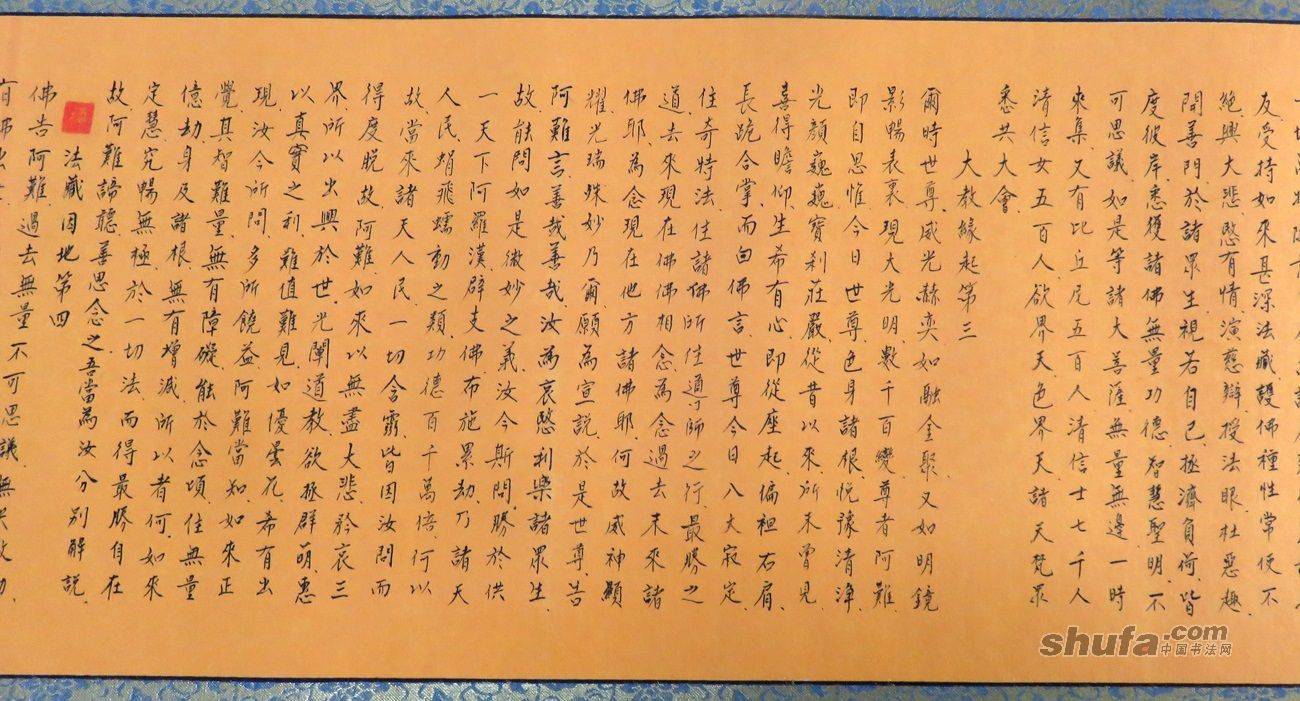 友受持如來甚深法藏護佛種性常使不
絕興大悲愍有情演慈辯授法眼杜惡趣
開善門於諸眾生視若自己拯濟負荷皆
度彼岸悉獲諸佛無量功德智慧聖明不
可思議如是等諸大菩薩無量無邊一時
來集又有比丘尼五百人清信士七千人
清信女五百人欲界天色界天諸天梵眾
悉共大會
大教緣起第三
爾時世尊威光赫奕如融金聚又如明鏡
影暢表裏現大光明數千百變尊者阿難
即自思惟今日世尊色身諸根悅豫清淨
光顏巍巍寶剎莊嚴從昔以來所未曾見
喜得瞻仰生希有心即從座起偏袒右肩
長跪合掌而白佛言世尊今日入大寂定
住奇特法住諸佛所住導師之行最勝之
道去來現在佛佛相念為念過去未來諸
佛耶為念現在他方諸佛耶何故威神顯
耀光瑞殊妙乃爾願為宣說於是世尊告
阿難言善哉善哉汝為哀愍利樂諸眾生
故能問如是微妙之義汝今斯問勝於供
一天下阿羅漢辟支佛布施累劫乃諸天
人民蜎飛蠕動之類功德百千萬倍何以
故當來諸天人民一切含靈皆因汝問而
得度脫故阿難如來以無盡大悲矜哀三
界所以出興於世光闡道教欲拯群萌惠
以真實之利難值難見如優曇花希有出
現汝今所問多所饒益阿難當知如來正
覺其智難量無有障礙能於念頃住無量
億劫身及諸根無有增減所以者何如來
定慧究暢無極於一切法而得最勝自在
故阿難諦聽善思念之吾當為汝分別解說
法藏因地第四
佛告阿難過去無量不可思議無央數劫
shufa.com
中国书法网